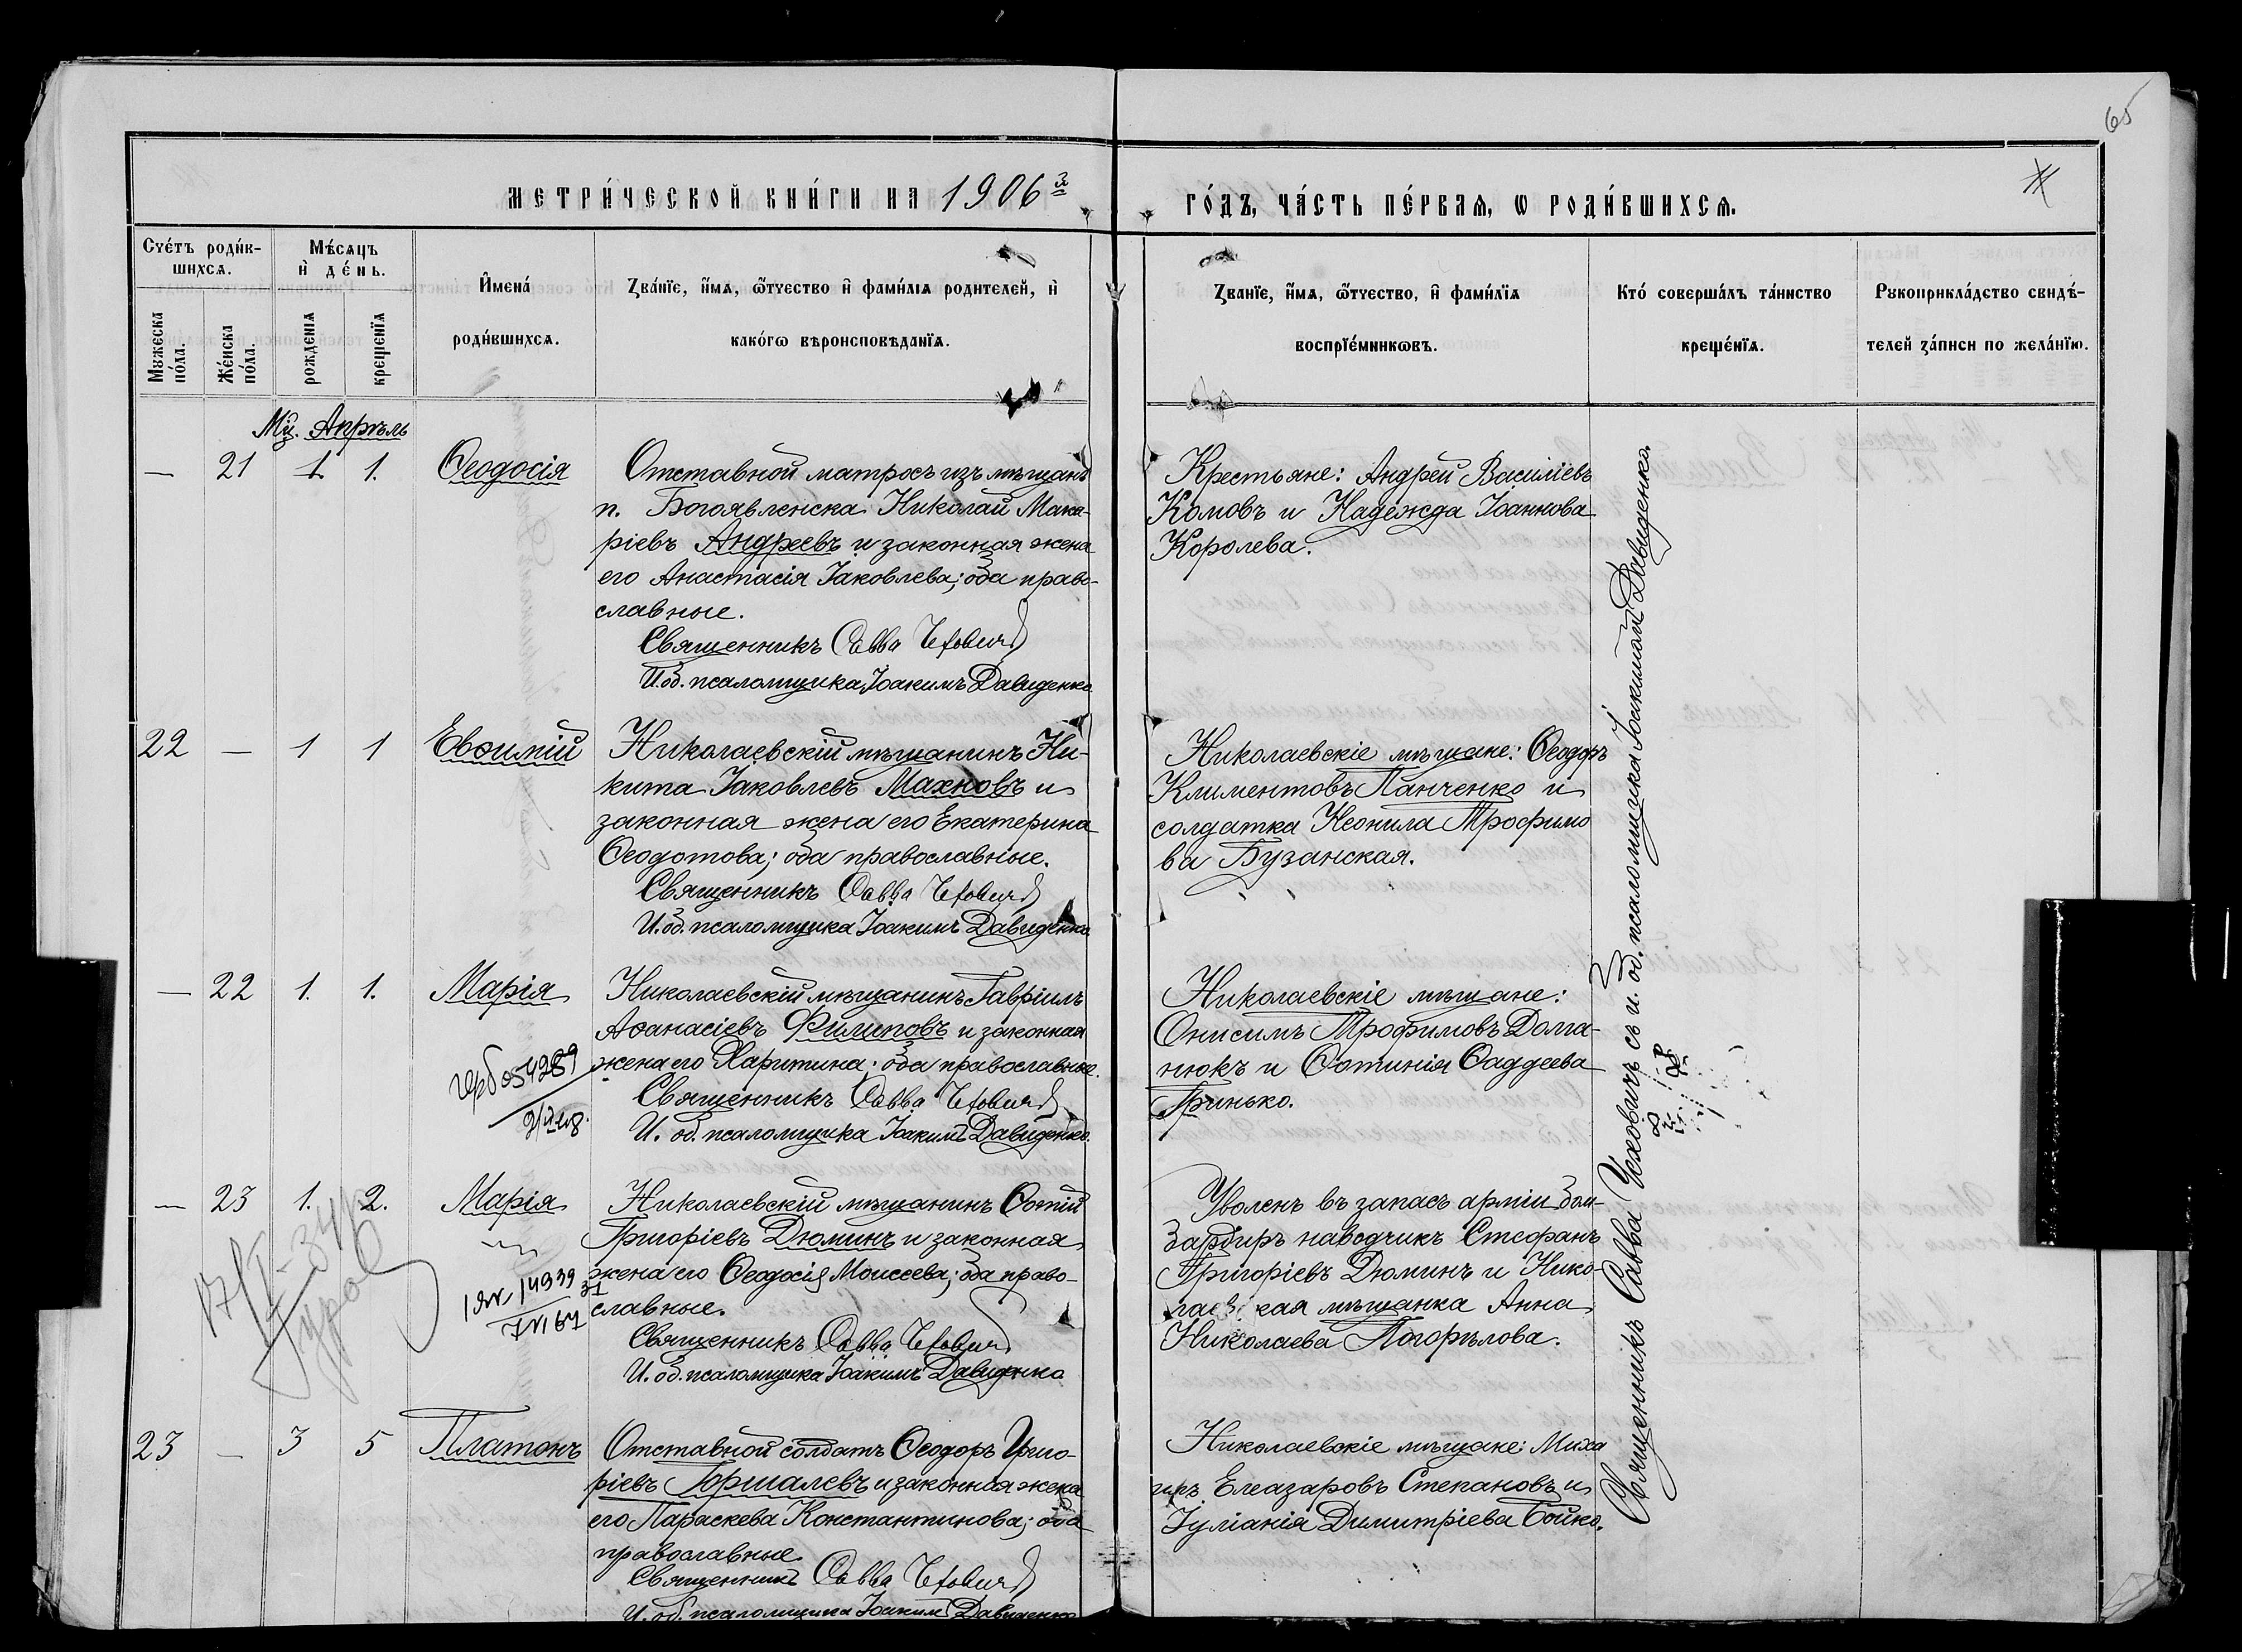 65
МЕТРИ́ЧЕСКОЙ КНИ́ГИ НА 1906й
ГО́ДЪ, ЧА́СТЬ ПЕ́РВАѦ, Ѡ РОДИ́ВШИХСѦ.
Сче́тъ роди́в-
шихсѧ.
Мꙋжеска по́ла.
Же́нска по́ла.
Мѣ́сѧцъ
и҆ де́нь.
рожденїѧ
крещенїѧ
И҆мена́
роди́вшихсѧ.
Зва́нїе, и҆́мѧ, ѻ҆́тчество и҆ фами́лїѧ родителей, и҆
како́гѡ вѣроисповѣданїѧ.
Званїе, и҆́мѧ, ѻ҆́тчество, и҆ фами́лїѧ
воспрїе́мникѡвъ.
Кто́ соверша́лъ та́инство
креще́нїѧ.
Рꙋкоприкла́дство свидѣ́-
телей за́писи по жела́нїю.
Мц. Апрѣль
— 21 1. 1. Ѳеодосія
Отставной матросъ изъ мѣщанъ
п. Богоявленска Николай Мака-
ріевъ Андреевъ и законная жена
его Анастасія Іаковлева; оба право-
славные.
Священникъ Савва Усховичъ
И. об. псаломщика Іоакимъ Давиденко
Крестьяне: Андрей Василіевъ
Комовъ и Надежда Іоаннова
Королева.
22 — 1 1 Евѳимій
Николаевскій мѣщанинъ Ни-
кита Іаковлевъ Махновъ и
законная жена его Екатерина
Ѳеодотова; оба православные.
Священникъ Савва Усховичъ
И. об. псаломщика Іоакимъ Давиденко
Николаевскіе мѣщане: Ѳеодоръ
Климентовъ Панченко и
солдатка Неонила Трофимо
ва Бузанская.
— 22 1. 1. Марія
Николаевскій мѣщанинъ Гавріилъ
Аѳанасіевъ Филиповъ и законная
жена его Харитина; оба православные.
Священникъ Савва Усховичъ
И. об. псаломщика Іоакимъ Давиденко
054289
Николаевскіе мѣщане:
Онисимъ Трофимовъ Долга-
нюкъ и Фотинія Ѳаддеева
Гринько.
— 23 1. 2. Марія
Николаевскій мѣщанинъ Фотій
Григоріевъ Дюминъ и законная
жена его Ѳеодосія Моисеева; оба право-
славные.
Священникъ Савва Усховичъ
И. об. псаломщика Іоакимъ Давиденко
14939
Уволенъ въ запасъ арміи бом-
бардиръ наводчикъ Стефанъ
Григоріевъ Дюминъ и Нико-
лаевская мѣщанка Анна
Николаева Погорѣлова.
23 — 3 5 Платонъ
Отставной солдатъ Ѳеодоръ Григо-
ріевъ Горшалевъ и законная жена
его Параскева Константинова; оба
православные.
Священникъ Савва Усховичъ
И. об. псаломщика Іоакимъ Давиденко
Николаевскіе мѣщане: Миха
илъ Елеазаровъ Степановъ и
Іуліанія Димитріева Бойко.
Священникъ Савва Усховичъ съ и. об. псаломщика Іоакимомъ Давиденко.